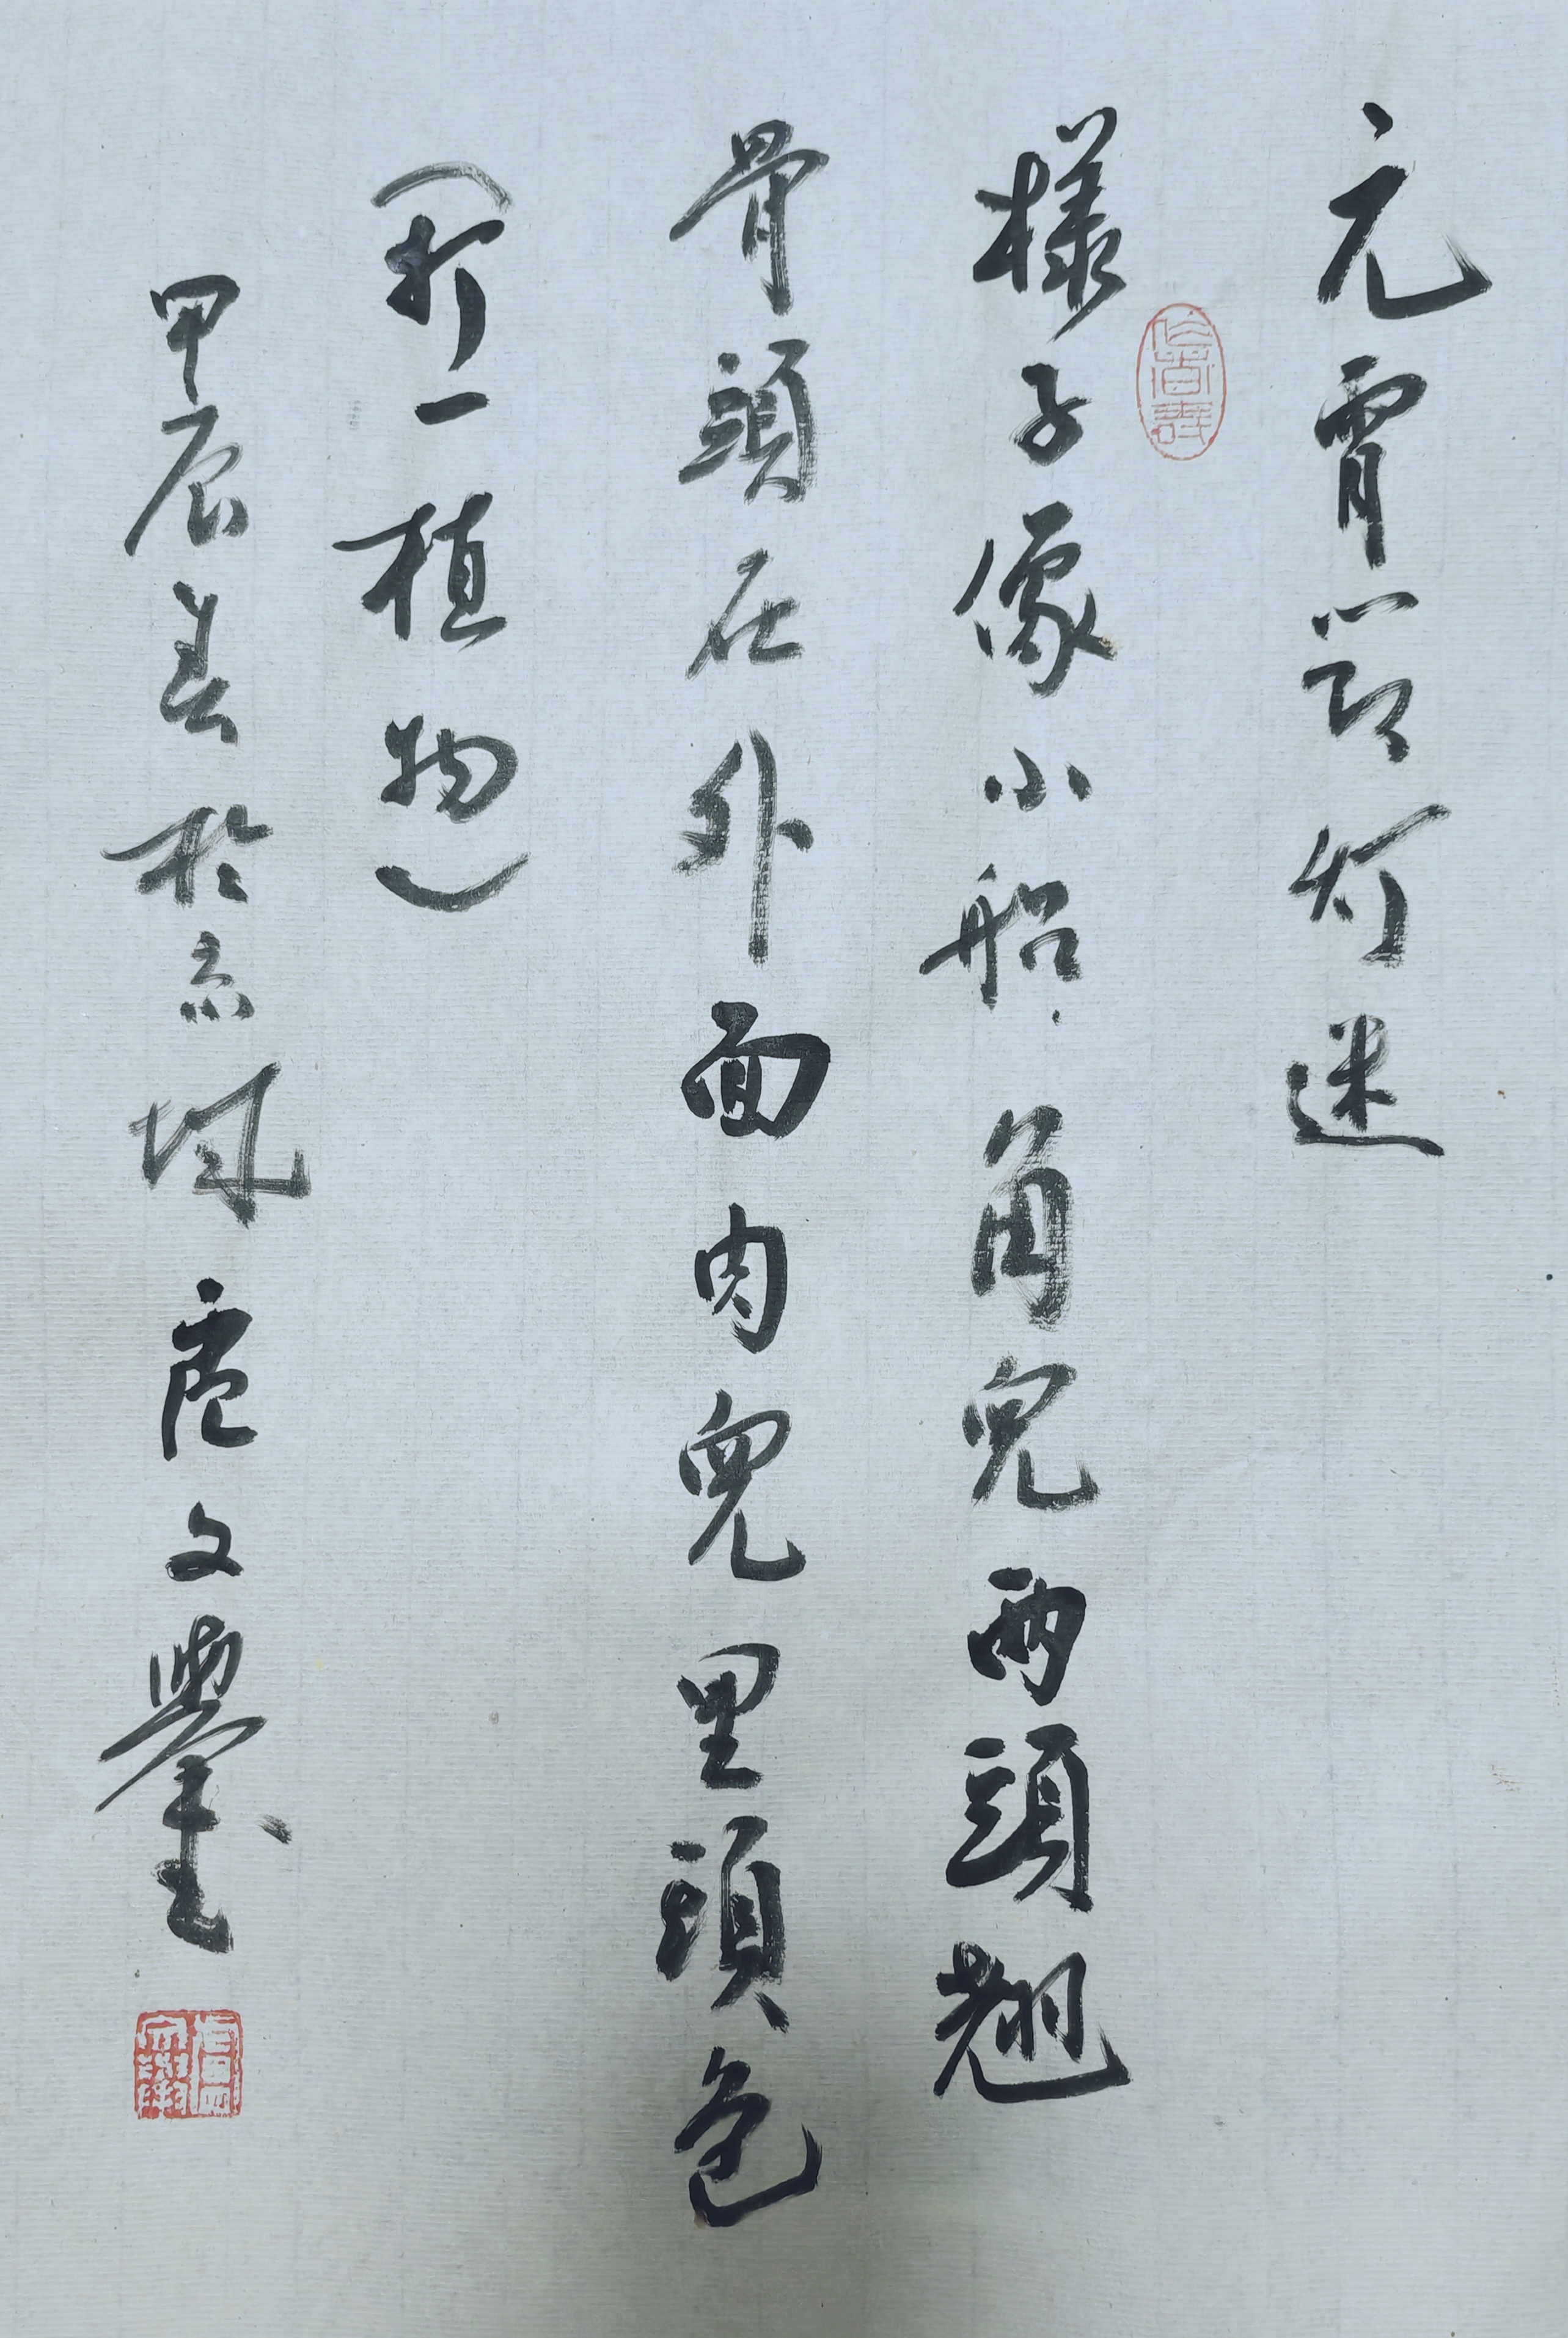 元宵節灯迷
樣子像小船角兒兩頭翹
骨頭在外面肉兒里頭包
（打一植物）
甲辰春於京城唐文舉書